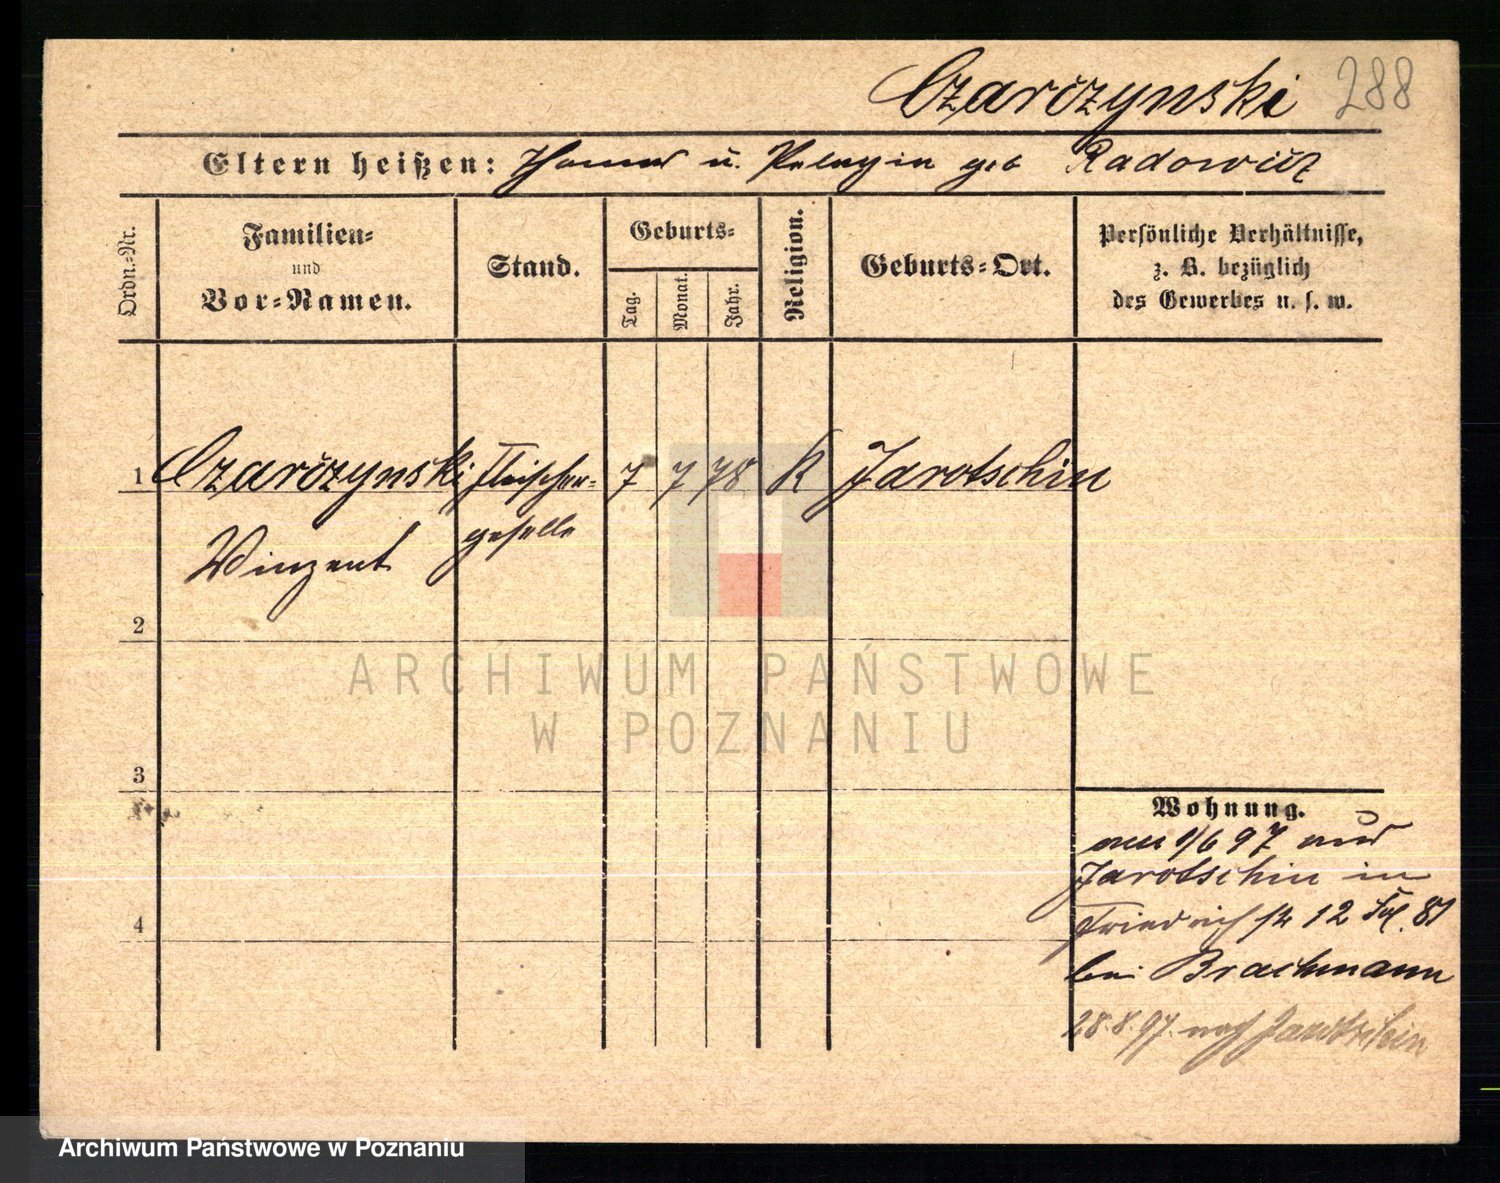 Czarczynski 288
Eltern heißen: Thomas u. Pelagia geb Radowicz
Ordn.=Nr.
Familien=
und
Vor=Namen.
Stand.
Geburts=
Tag.
Monat.
Jahr.
Religion.
Geburts=Ort.
Persönliche Verhältnisse,
z. B. bezüglich
des Gewerbes u. s. w.
1 Czarczynski Fleischer= 7 7 78 K Jarotschin
Winzent geselle
2
3
4
Wohnung.
am 1/6 97 aus
Jarotschin in
Friedrich str 12
bei Brachmann
28.8.97. nach Jarotschin
ARCHIWUM PAŃSTWOWE
W POZNANIU
Archiwum Państwowe w Poznaniu